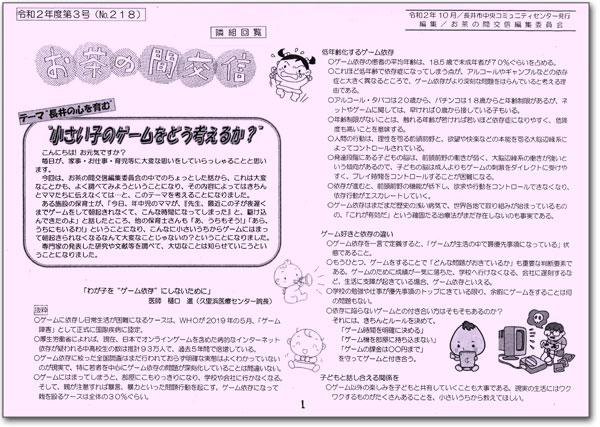 令和2年度第3号（No.218）
隣組回覧
お茶の間交信
テーマ"長井の心を育む"
"小さい子のゲームをどう考えるか？"
こんにちは！お元気ですか？
毎日が、家事・お仕事・育児等に大変な思いをしていらっしゃることと思います。
今回は、お茶の間交信編集委員会の中でのちょっとした話から、これは大変なことかも、よく調べてみようということになり、その内容によってはきちんとママたちに伝えなくては…と、このテーマを考えることになりました。
ある施設の保育士が、「今日、年中児のママが、『先生、最近この子が夜遅くまでゲームをして朝起きれなくて、こんな時間になってしまった』と、駆け込んできたのよ」と話したところ、他の保育士さんも「あ、うちもそう」「あら、うちにもいるわ」ということになり、こんなに小さいうちからゲームにはまって朝起きられなくなるなんて大変なことじゃないの？ということになりました。
専門家の発表した研究や文献等を調べて、大切なことは知らせていこうということになりました。
「わが子を"ゲーム依存"にしないために」
医師　樋口　進（久里浜医療センター院長）
抜粋
○ゲームに依存し日常生活が困難になるケースは、WHOが2019年の5月、「ゲーム障害」として正式に国際疾病に認定。
○厚生労働省によれば、現在、日本でオンラインゲームを含めた病的なインターネット依存が疑われる中高校生の数は推計93万人で、過去5年間で倍増している。
○ゲーム依存に絞った全国調査はまだ行われておらず明確な実態はよくわかっていないのが現実で、特に若者を中心にゲーム依存の問題が深刻化していることは間違いない。
○ゲームにはまってしまうと、部屋にこもりっきりになり、学校や会社に行かなくなる。そして、親が注意すれば暴言、暴力といった問題行動を起こす。ゲーム依存になって銭を殴るケースは全体の30%ぐらい。
令和2年10月／長井市中央コミュニティセンター発行
編集／お茶の間交信編集委員会
低年齢化するゲーム依存
○ゲーム依存の患者の平均年齢は、18.5歳で未成年者が70%ぐらいを占める。
○これほど低年齢で依存症になってしまう点が、アルコールやギャンブルなどの依存症と大きく異なるところで、ゲーム依存がより深刻な問題をはらんでいると考える理由である。
○アルコール・タバコは20歳から、パチンコは18歳からと年齢制限があるが、ネットやゲームに関しては、早ければ0歳から接している子もいる。
○年齢制限がないことは、触れる年齢が若ければ若いほど依存症になりやすく、危険度も高いことを意味する。
○人間の行動は、理性を司る前頭前野と、欲望や快楽などの本能を司る大脳辺縁系によってコントロールされている。
○発達段階にある子どもの脳は、前頭前野の働きが弱く、大脳辺縁系の働きが強いという傾向があるので、子どもは成人よりもゲームの刺激をダイレクトに受けやすく、プレイ時間をコントロールすることが困難になる。
○依存が進むと、前頭前野の機能が低下し、欲求や行動をコントロールできなくなり、依存行動がエスカレートしていく。
○ゲーム依存はまだまだ歴史の浅い病気で、世界各地で取り組みが始まっているものの、「これが有効だ」という確固たる治療法がまだ存在しないのも事実である。
ゲーム好きと依存の違い
○ゲーム依存を一言で定義すると、「ゲームが生活の中で最優先事項になっている」状態であること。
○もうひとつ、ゲームをすることで「どんな問題がおきているか」も重要な判断要素である。ゲームのために成績が一気に落ちた、学校へ行けなくなる、会社に遅刻するなど、生活に支障が起きている場合、ゲーム依存といえる。
○学校の勉強や仕事が優先事項のトップにきている限り、余暇にゲームをすることは何の問題もない。
○依存に陥らないゲームとの付き合い方はそもそもあるのか？
それには、きちんとルールを決めて、
「ゲーム時間を明確に決める」
「ゲーム機を部屋に持ち込まない」
「ゲームの課金は〇〇円まで」
を守ってゲームと付き合う。
子どもたちと話し合える関係を
○ゲーム以外の楽しみを子どもと共有していくことも大事である。現実の生活にはワクワクするものがたくさんあることを、小さいうちから教えてほしい。
1